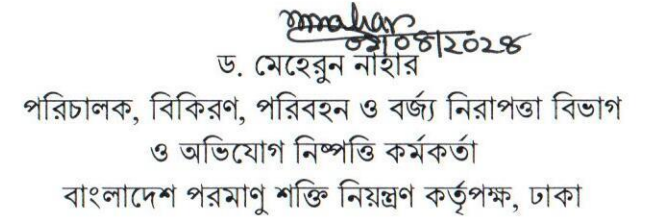 ড. মেহেরুন নাহার
পরিচালক, বিকিরণ, পরিবহন ও বর্জ্য নিরাপত্তা বিভাগ
ও অভিযোগ নিষ্পত্তি কর্মকর্তা
বাংলাদেশ পরমাণু শক্তি নিয়ন্ত্রণ কর্তৃপক্ষ, ঢাকা